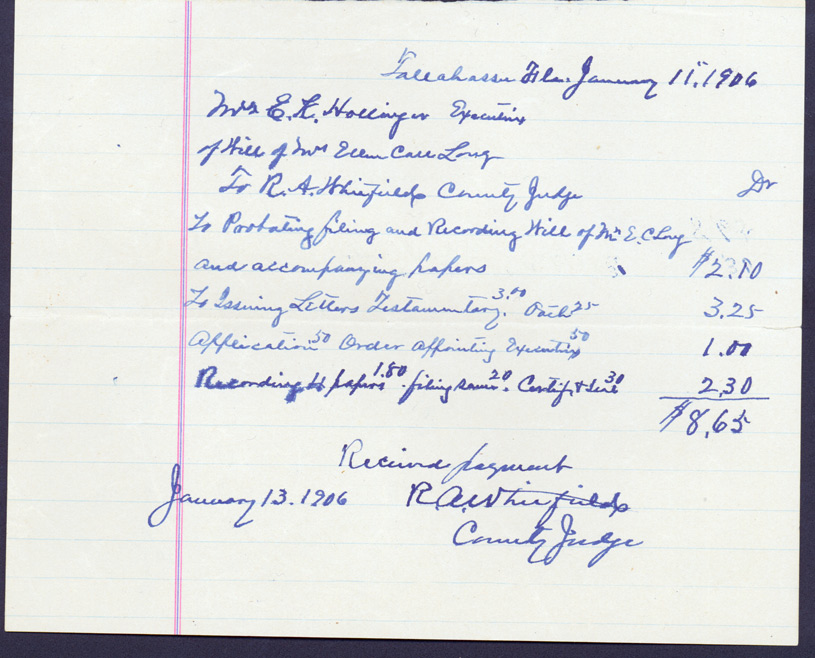 Tallahassee Fla. January 11", 1906
Mrs E. K. Hollinger Executrix
of Will of Mrs Ellen Call Long
To R. A. Whitfield County Judge Dr
To Probating filing and Recording Will of Mrs E. C Long
and accompanying papers $2.10
To Issuing Letters Testamentary. 3.00 Oath 25 3.25
Application 50 Order Appointing Executrix 50 1.00
Recording 4 papers 1.80. filing same. 20 Certif. & Seal 30 2.30
$8.65
Received payment
January 13. 1906 R. A. Whitfield
County Judge